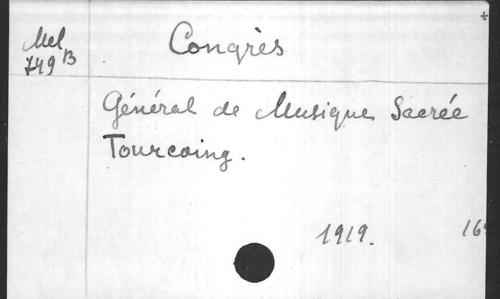 Mel
749 B
Congrès
Général de Musique Sacrée
Tourcoing.
1919.